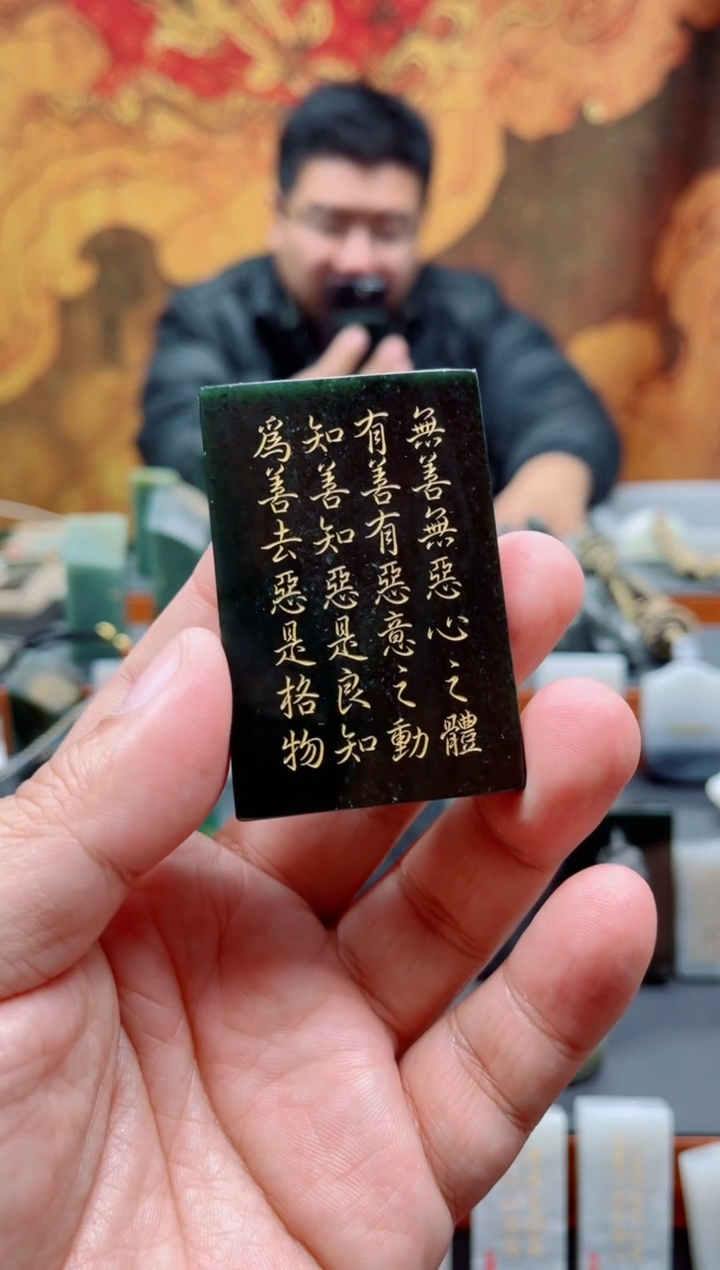 無善無惡心之體
有善有惡意之動
知善知惡是良知
爲善去惡是格物